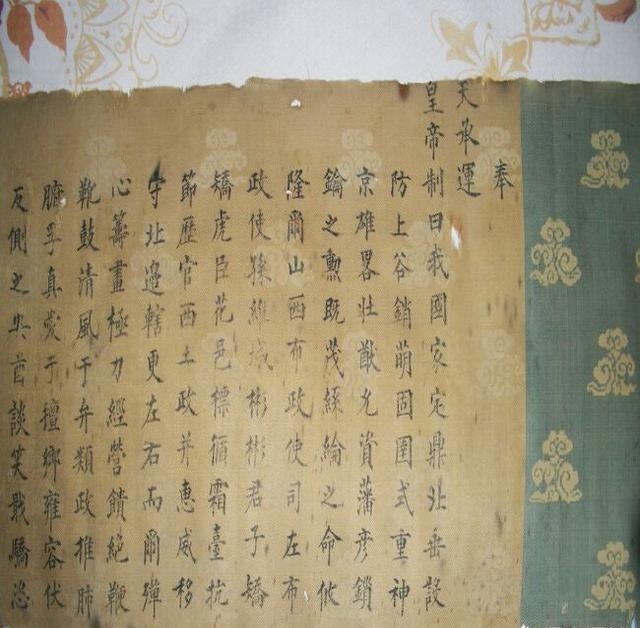 奉
天承運
皇帝制曰我國家定鼎北垂設
防上谷銷萌固圉式重神
京雄畧壯猷允資藩彥鎖
鑰之勳既茂絲綸之命攸
隆爾山西布政使司左布
政使孫維城彬彬君子矯
矯虎臣花邑標循霜臺抗
節歷官西土政并惠威移
守北邊轄更左右而爾殫
心籌畫極力經營饋絕鞭
靴鼓清風于弁類政推肺
腑孚真愛于鄉雍容伏
反側之酋談笑戢驕恣